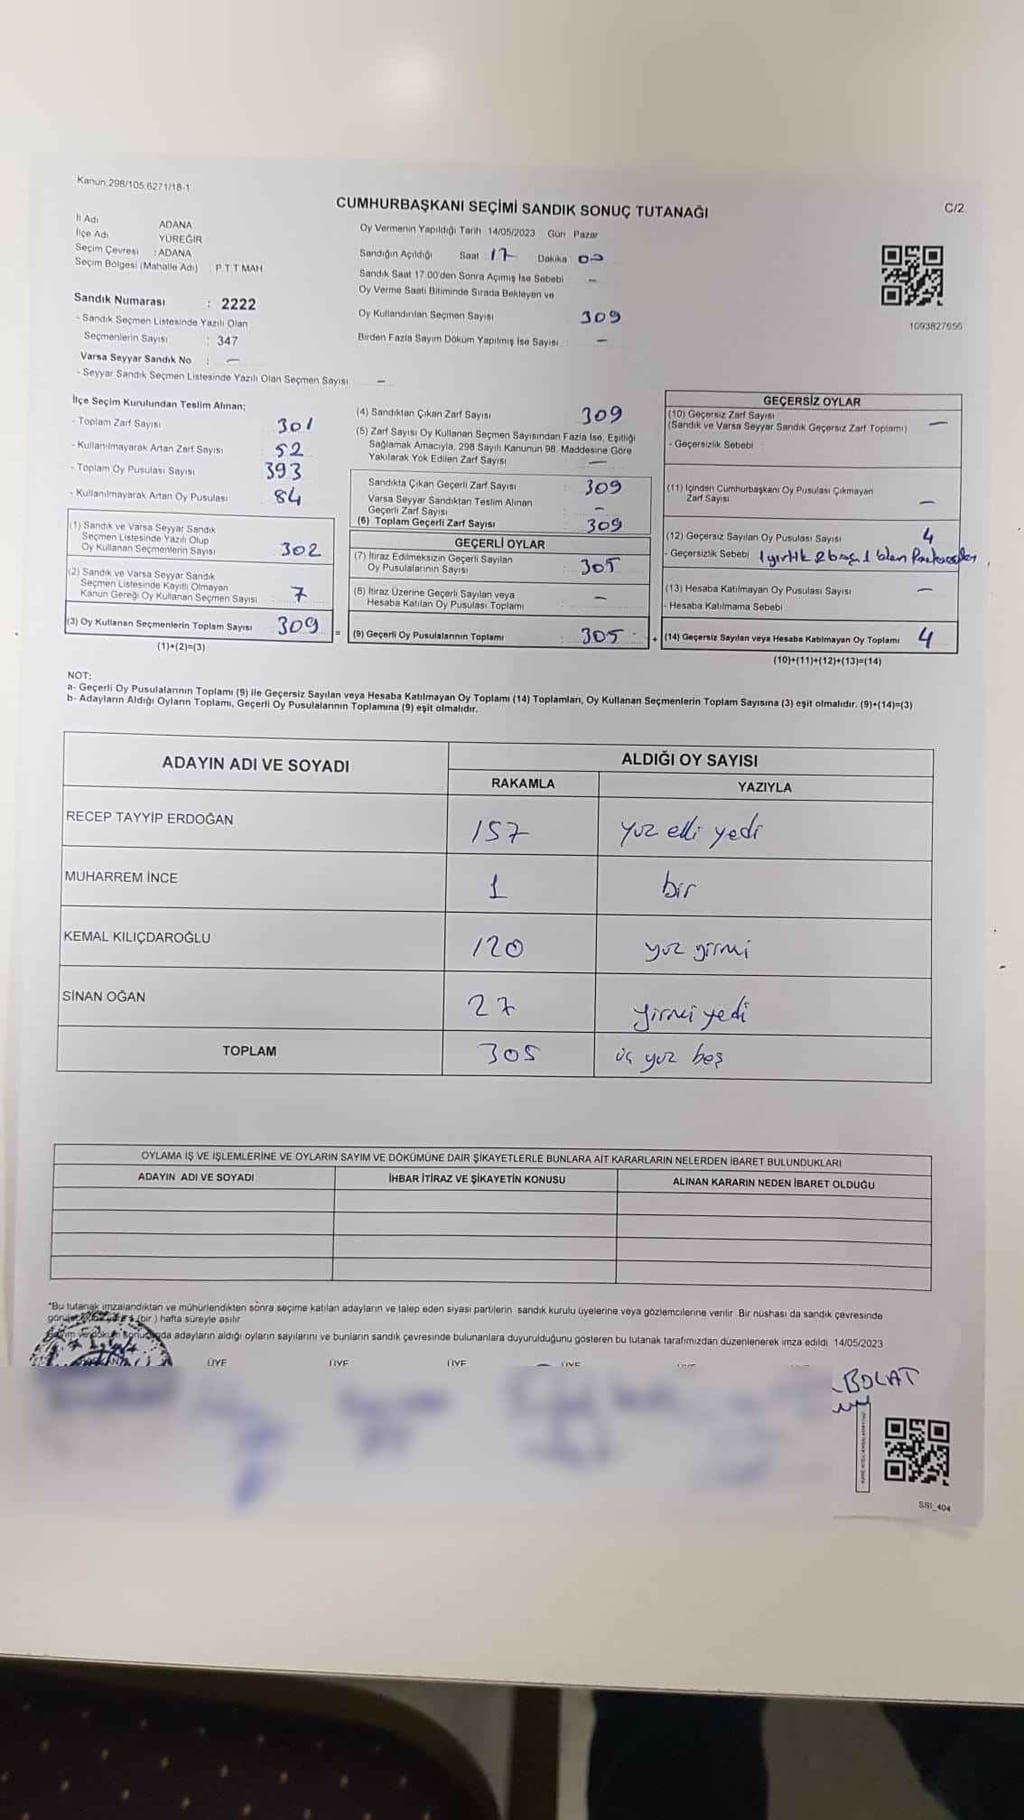 Kanun:298/105,6271/18-1
CUMHURBAŞKANI SEÇİMİ SANDIK SONUÇ TUTANAĞI
C/2
İl Adı ADANA
İlçe Adı YÜREĞİR
Seçim Çevresi : ADANA
Seçim Bölgesi (Mahalle Adı) P.T.T MAH
Sandık Numarası : 2222
- Sandık Seçmen Listesinde Yazılı Olan
Seçmenlerin Sayısı : 347
Varsa Seyyar Sandık No : –
- Seyyar Sandık Seçmen Listesinde Yazılı Olan Seçmen Sayısı –
Oy Vermenin Yapıldığı Tarih 14/05/2023 Gün Pazar
Sandığın Açıldığı Saat 17 Dakika 00
Sandık Saat 17.00'den Sonra Açımış İse Sebebi –
Oy Verme Saati Bitiminde Sırada Bekleyen ve
Oy Kullandırılan Seçmen Sayısı 309
Birden Fazla Sayım Döküm Yapılmış İse Sayısı –
1093827656
İlçe Seçim Kurulundan Teslim Alınan;
- Toplam Zarf Sayısı 301
- Kullanılmayarak Artan Zarf Sayısı 52
- Toplam Oy Pusulası Sayısı 393
- Kullanılmayarak Artan Oy Pusulası 84
(1) Sandık ve Varsa Seyyar Sandık
Seçmen Listesinde Yazılı Olup
Oy Kullanan Seçmenlerin Sayısı 302
(2) Sandık ve Varsa Seyyar Sandık
Seçmen Listesinde Kayıtlı Olmayan
Kanun Gereği Oy Kullanan Seçmen Sayısı 7
(3) Oy Kullanan Seçmenlerin Toplam Sayısı 309
(1)+(2)=(3)
(4) Sandıktan Çıkan Zarf Sayısı 309
(5) Zarf Sayısı Oy Kullanan Seçmen Sayısından Fazla İse, Eşitliği
Sağlamak Amacıyla, 298 Sayılı Kanunun 98. Maddesine Göre
Yakılarak Yok Edilen Zarf Sayısı –
Sandıkta Çıkan Geçerli Zarf Sayısı 309
Varsa Seyyar Sandıktan Teslim Alınan
Geçerli Zarf Sayısı –
(6) Toplam Geçerli Zarf Sayısı 309
GEÇERLİ OYLAR
(7) İtiraz Edilmeksizin Geçerli Sayılan
Oy Pusulalarının Sayısı 305
(8) İtiraz Üzerine Geçerli Sayılan veya
Hesaba Katılan Oy Pusulası Toplamı –
= (9) Geçerli Oy Pusulalarının Toplamı : 305
GEÇERSİZ OYLAR
(10) Geçersiz Zarf Sayısı
(Sandık ve Varsa Seyyar Sandık Geçersiz Zarf Toplamı) –
- Geçersizlik Sebebi
(11) İçinden Cumhurbaşkanı Oy Pusulası Çıkmayan
Zarf Sayısı –
(12) Geçersiz Sayılan Oy Pusulası Sayısı 4
- Geçersizlik Sebebi 1 yırtık 2 boş, 1
(13) Hesaba Katılmayan Oy Pusulası Sayısı –
- Hesaba Katılmama Sebebi
+ (14) Geçersiz Sayılan veya Hesaba Katılmayan Oy Toplamı 4
(10)+(11)+(12)+(13)=(14)
NOT:
a- Geçerli Oy Pusulalarının Toplamı (9) ile Geçersiz Sayılan veya Hesaba Katılmayan Oy Toplamı (14) Toplamları, Oy Kullanan Seçmenlerin Toplam Sayısına (3) eşit olmalıdır. (9)+(14)=(3)
b- Adayların Aldığı Oyların Toplamı, Geçerli Oy Pusulalarının Toplamına (9) eşit olmalıdır.
ADAYIN ADI VE SOYADI ALDIĞI OY SAYISI
RAKAMLA YAZIYLA
RECEP TAYYİP ERDOĞAN 157 yüz elli yedi
MUHARREM İNCE 1 bir
KEMAL KILIÇDAROĞLU 120 yuz yirmi
SİNAN OĞAN 27 yirmi yedi
TOPLAM 305 üç yuz beş
OYLAMA İŞ VE İŞLEMLERİNE VE OYLARIN SAYIM VE DÖKÜMÜNE DAİR ŞİKAYETLERLE BUNLARA AİT KARARLARIN NELERDEN İBARET BULUNDUKLARI
ADAYIN ADI VE SOYADI İHBAR İTİRAZ VE ŞİKAYETİN KONUSU ALINAN KARARIN NEDEN İBARET OLDUĞU
*Bu tutanak imzalandıktan ve mühürlendikten sonra seçime katılan adayların ve talep eden siyasi partilerin sandık kurulu üyelerine veya gözlemcilerine verilir. Bir nüshası da sandık çevresinde
(bir ) hafta süreyle asılır
adayların aldığı oyların sayılarını ve bunların sandık çevresinde bulunanlara duyurulduğunu gösteren bu tutanak tarafımızdan düzenlenerek imza edildi. 14/05/2023
ÜYE ÜYE ÜYE ÜYE
BOLAT
SSI_404